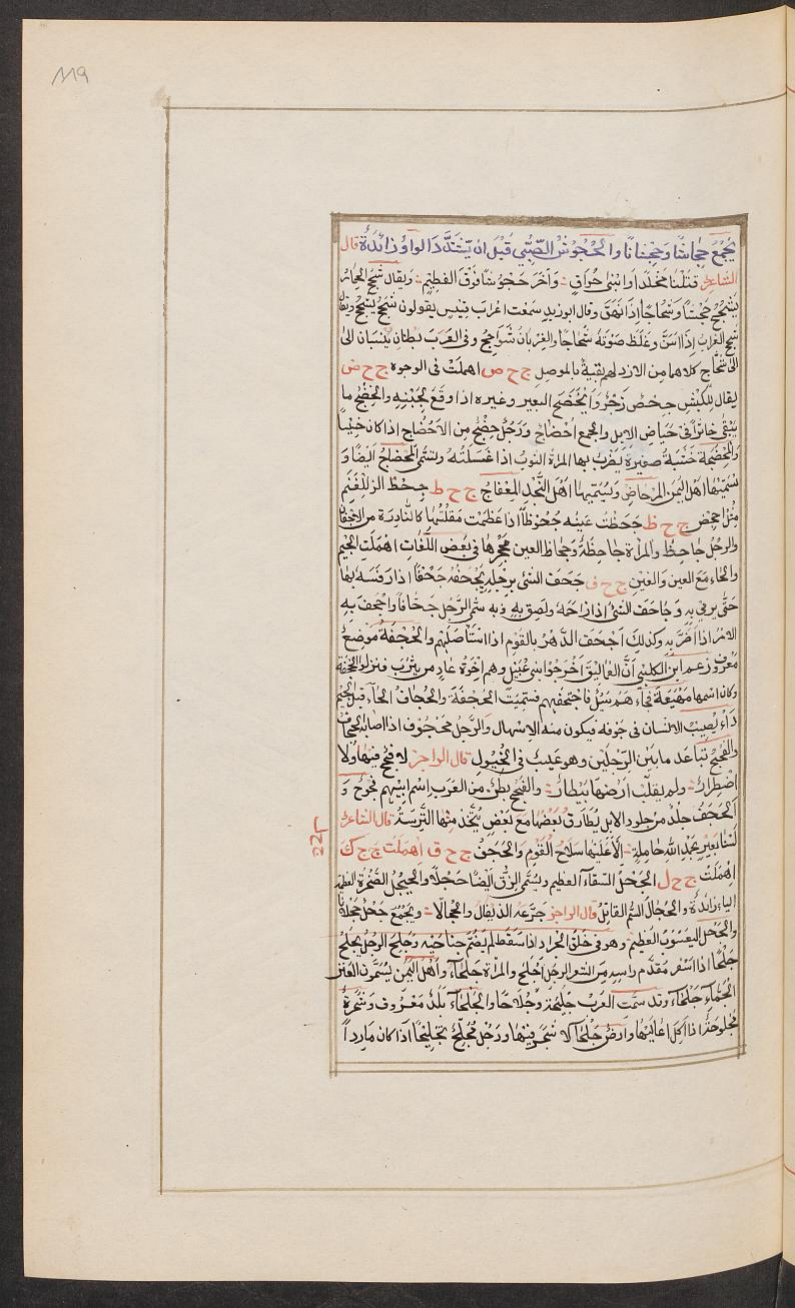 119
يُجْمَعُ جِحَاشًا وَجِحْشَانًا والجُحْوُشُ الصَّبِيّ قَبْلَ ان يَشْتَدَّ والواوُ زائدَة قال
الشاعر قتلنا مخلدا وابنى حُراقٍ وَآخَرَ جَحْوَشًا فَوْقَ الفطيم ويقال شحج الحمار
يشحج شحجًا وشحاجًا اذا نهق وقال ابو زيد سمعت اعراب قيس يقولون شحج يشحج
شحج الغراب اذا اسنّ وغلظ صوته شحاجًا والغربان شواحج وفى العرب بطنان ينسبان الى
الى شحّاج كلاهما من الازد لهم بقية بالموصل ج ح ص اهملت فى الوجوه ج ح ض
يقال للكبش جحض زجر وانخضج البعير وغيره اذا وقع لجنبه والحضج ما
يبقى خاثرا فى حياض الابل والجمع احضاج ورجل حضج من الاحضاج اذا كان خبيثًا
والمحضجة خشبة صغيرة يضرب بها المراة الثوب اذا غسلته وتسمى المحضاج ايضًا و
يسميها اهل اليمن المرحاض ويسميها اهل النجد المعفاج ج ح ط جحط زجر للغنم
مثل جحض ج ح ظ جحظت عينه جحوظًا اذا عظمت مقلتها كالنادرة من الاجفان
والرجل جاحظ والمراة جاحظة وجحاظ العين محجرها فى بعض اللغات اهملت الجيم
والحاء مع العين والغين ج ح ف جحف الشئ برجله يجحفه جحفًا اذا رفسه بها
حتى يرمى به وجاحف الشئ اذا زاحمه ولصق به وبه سمى الرجل جحافًا واجحف به
الامر اذا اضرّ به وكذلك اجحف الدهر بالقوم اذا استأصلهم والجحفة موضع
معروف زعم ابن الكلبى انّ العماليق اخرجوا بنى عبيل وهم اخوة عاد من يثرب فنزلوا الجحفة
وكان اسمها مهيعة فجاءهم سيل فاجتحفهم فسميت الجحفة والجحاف الحاء قبل الجيم
داء يصيب الانسان فى جوفه فيكون منه الاسهال والرجل مجحوف اذا اصابه الجحاف
والفحج تباعد ما بين الرجلين وهو عيب فى الخيول قال الراجز لا فحج فيها ولا
اصطرار ولم يقلب ارضها بيطار والفحج بطن من العرب اسم ابيهم فحوج و
الجحف جلد من جلود الابل يطارق بعضها مع بعض يتخذ منها الترسة قال الشاعر
لسنا بعير بحمد الله حاملة الا عليها سلاح القوم والحجف ج ح ق اهملت ج ح ك
اهملت ج ح ل الجحل السقاء العظيم ويسمى الزق ايضًا جحلًا والجيحل الصخرة العظيمة
الياء زائدة والجحال السم القاتل قال الراجز جرّعه الذيفان والجحالا ويجمع جحل جحلانا
والجحل اليعسوب العظيم وهو فى خلق الجراد اذا سقط لم يضم جناحيه وجلح الرجل يجلح
جلحًا اذا انحسر مقدم راسه من الشعر الرجل اجلح والمراة جلحاء واهل اليمن يسمون العنز
الجماء جلحاء وقد سمت العرب جليحة وجلاحًا والجلحاء بلد معروف وشجرة
مجلوحة اذا اكل اعاليها وارض جلحاء لا شجر فيها ورجل مجلح تجليحًا اذا كان ماردًا